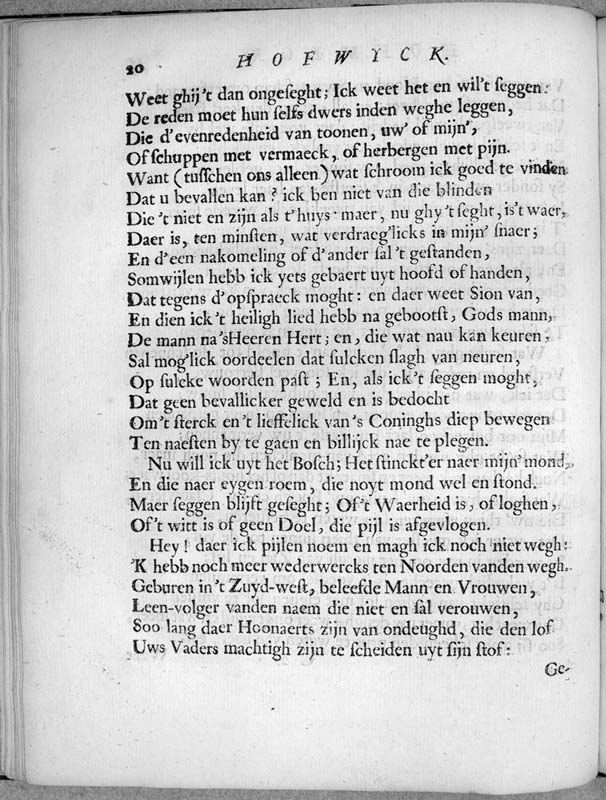 20 HOFWYCK.
Weet ghij't dan ongeseght; Ick weet het en wil't seggen:
De reden moet hun selfs dwers inden weghe leggen,
Die d'evenredenheid van toonen, uw' of mijn',
Of schuppen met vermaeck, of herbergen met pijn.
Want (tusschen ons alleen) wat schroom ick goed te vinden
Dat u bevallen kan? ick ben niet van die blinden
Die 't niet en zijn als t'huys: maer, nu ghy 't seght, is't waer,
Daer is, ten minsten, wat verdraeg'licks in mijn' snaer;
En d'een nakomeling of d'ander sal 't gestanden,
Somwijlen hebb ick yets gebaert uyt hoofd of handen,
Dat tegens d'opspraeck moght: en daer weet Sion van,
En dien ick't heiligh lied hebb na gebootst, Gods mann,
De mann na'sHeeren Hert; en, die wat nau kan keuren,
Sal mog'lick oordeelen dat sulcken slagh van neuren,
Op sulcke woorden past; En, als ick't seggen moght,
Dat geen bevallicker geweld en is bedocht
Om't sterck en't lieffelick van's Coninghs diep bewegen
Ten naesten by te gaen en billijck nae te plegen.
Nu will ick uyt het Bosch; Het stinckt'er naer mijn' mond,
En die naer eygen roem, die noyt mond wel en stond.
Maer seggen blijft geseght; Of't Waerheid is, of loghen,
Of't witt is of geen Doel, die pijl is afgevlogen.
Hey! daer ick pijlen noem en magh ick noch niet wegh:
'K hebb noch meer wederwercks ten Noorden vanden wegh.
Geburen in't Zuyd-west, beleefde Mann en Vrouwen,
Leen-volger vanden naem die niet en sal verouwen,
Soo lang daer Hoonaerts zijn van ondeughd, die den lof
Uws Vaders machtigh zijn te scheiden uyt sijn stof:
Ge-